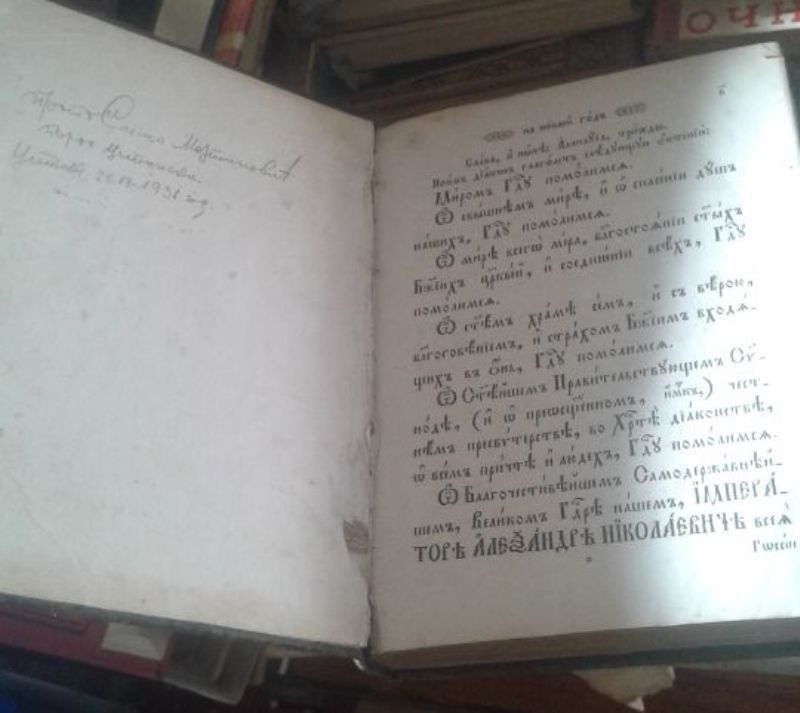 ОЧН
на новый го́дъ
Сла́ва, и҆ ны́нѣ. А҆ллилꙋ́їа, три́жды.
Мі́ромъ Гдⷭ҇ꙋ помо́лимсѧ.
Ѽ свы́шнѣмъ ми́рѣ, и҆ ѡ҆ спасе́нїи дꙋ́шъ
на́шихъ, Гдⷭ҇ꙋ помо́лимсѧ.
Ѽ ми́рѣ всегѡ̀ мі́ра, бл҃госто́ѧнїи ст҃ы́хъ
Бж҃їихъ цр҃кве́й, и҆ соедине́нїи всѣ́хъ, Гдⷭ҇ꙋ
помо́лимсѧ.
Ѽ ст҃ѣ́мъ хра́мѣ се́мъ, и҆ съ вѣ́рою,
бл҃гоговѣ́нїемъ, и҆ стра́хомъ Бж҃їимъ входѧ́-
щихъ въ о́нь, Гдⷭ҇ꙋ помо́лимсѧ.
Ѽ Ст҃ѣ́йшемъ Прави́тельствꙋющемъ Сѷ-
но́дѣ, (и҆ ѡ҆ преѡсщ҃е́нномъ, и҆мⷬ҇къ,) чест-
нѣ́мъ пресвꙋ́терствѣ, во Хрⷭ҇тѣ̀ дїа́конствѣ,
ѡ҆ все́мъ при́чтѣ и҆ лю́дехъ, Гдⷭ҇ꙋ помо́лимсѧ.
Ѽ Благочести́вѣйшемъ Самодержа́внѣй-
шемъ, Вели́комъ Гдⷭ҇рѣ на́шемъ, І҆МПЕРА́-
ТОРѢ А҆ЛЕѮА́НДРѢ НІКОЛА́ЕВИЧѢ всеѧ̀
Рѡссі́и